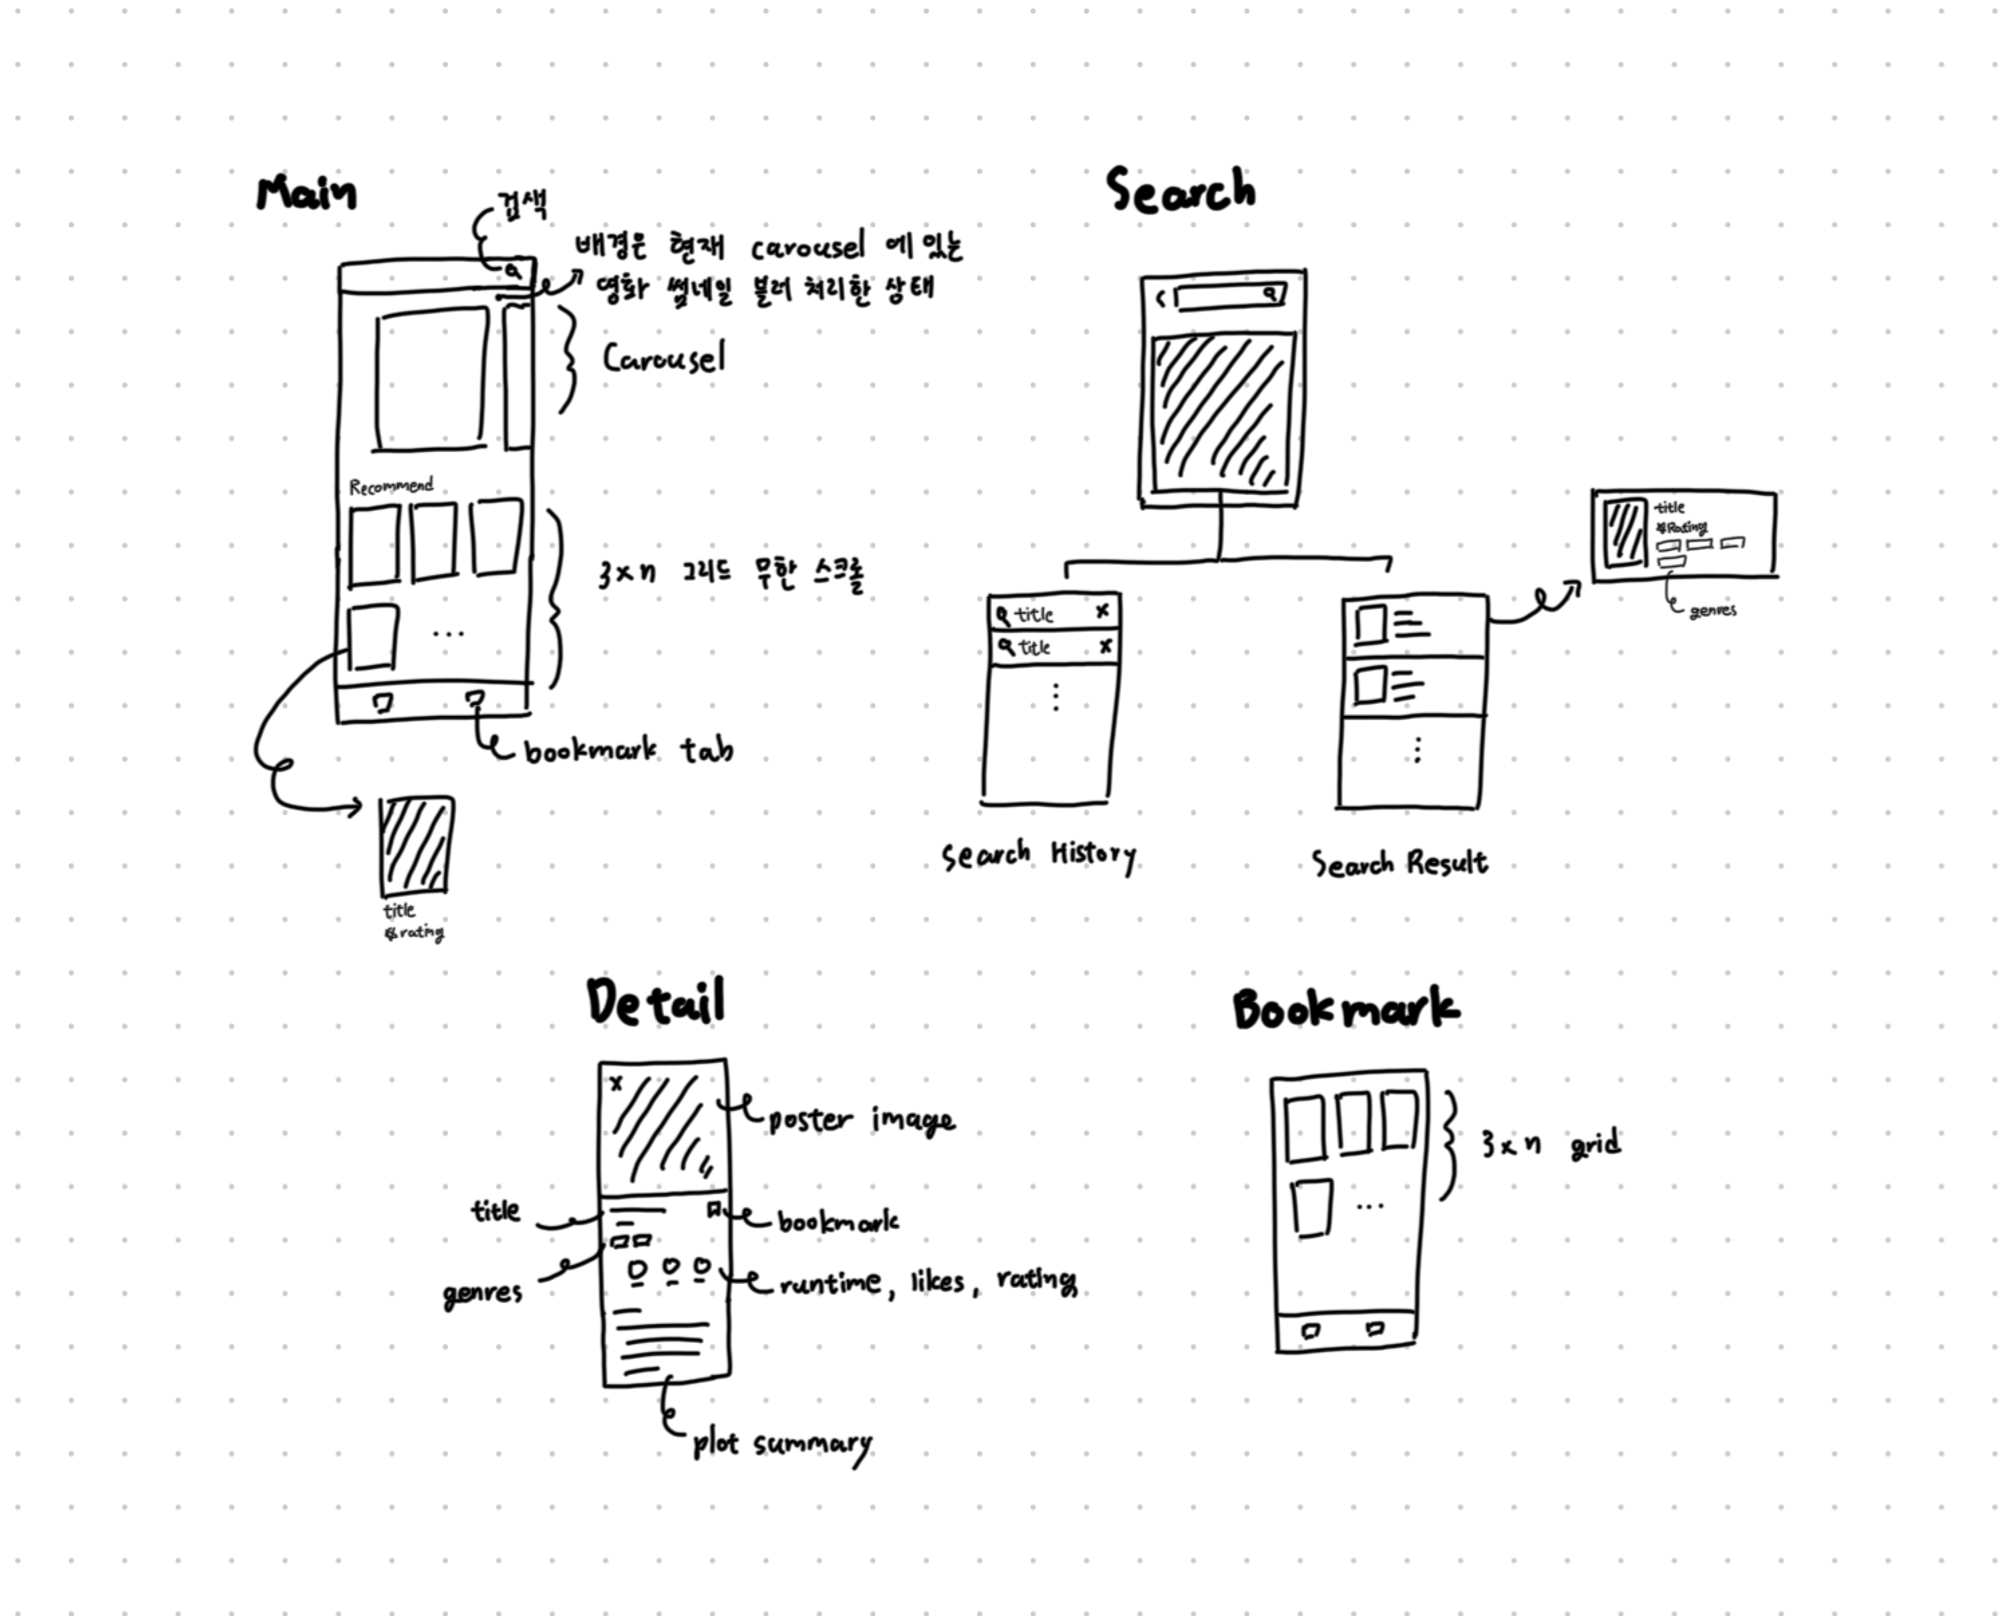 Main
검색
배경은 현재 carousel 에 있는
영화 썸네일 블러 처리한 상태
Carousel
Recommend
3 x n 그리드 무한 스크롤
...
bookmark tab
title
rating
Search
title x
title x
Search History
Search Result
title
Rating
genres
Detail
x
poster image
title
bookmark
genres
runtime, likes, rating
plot summary
Bookmark
3 x n grid
...